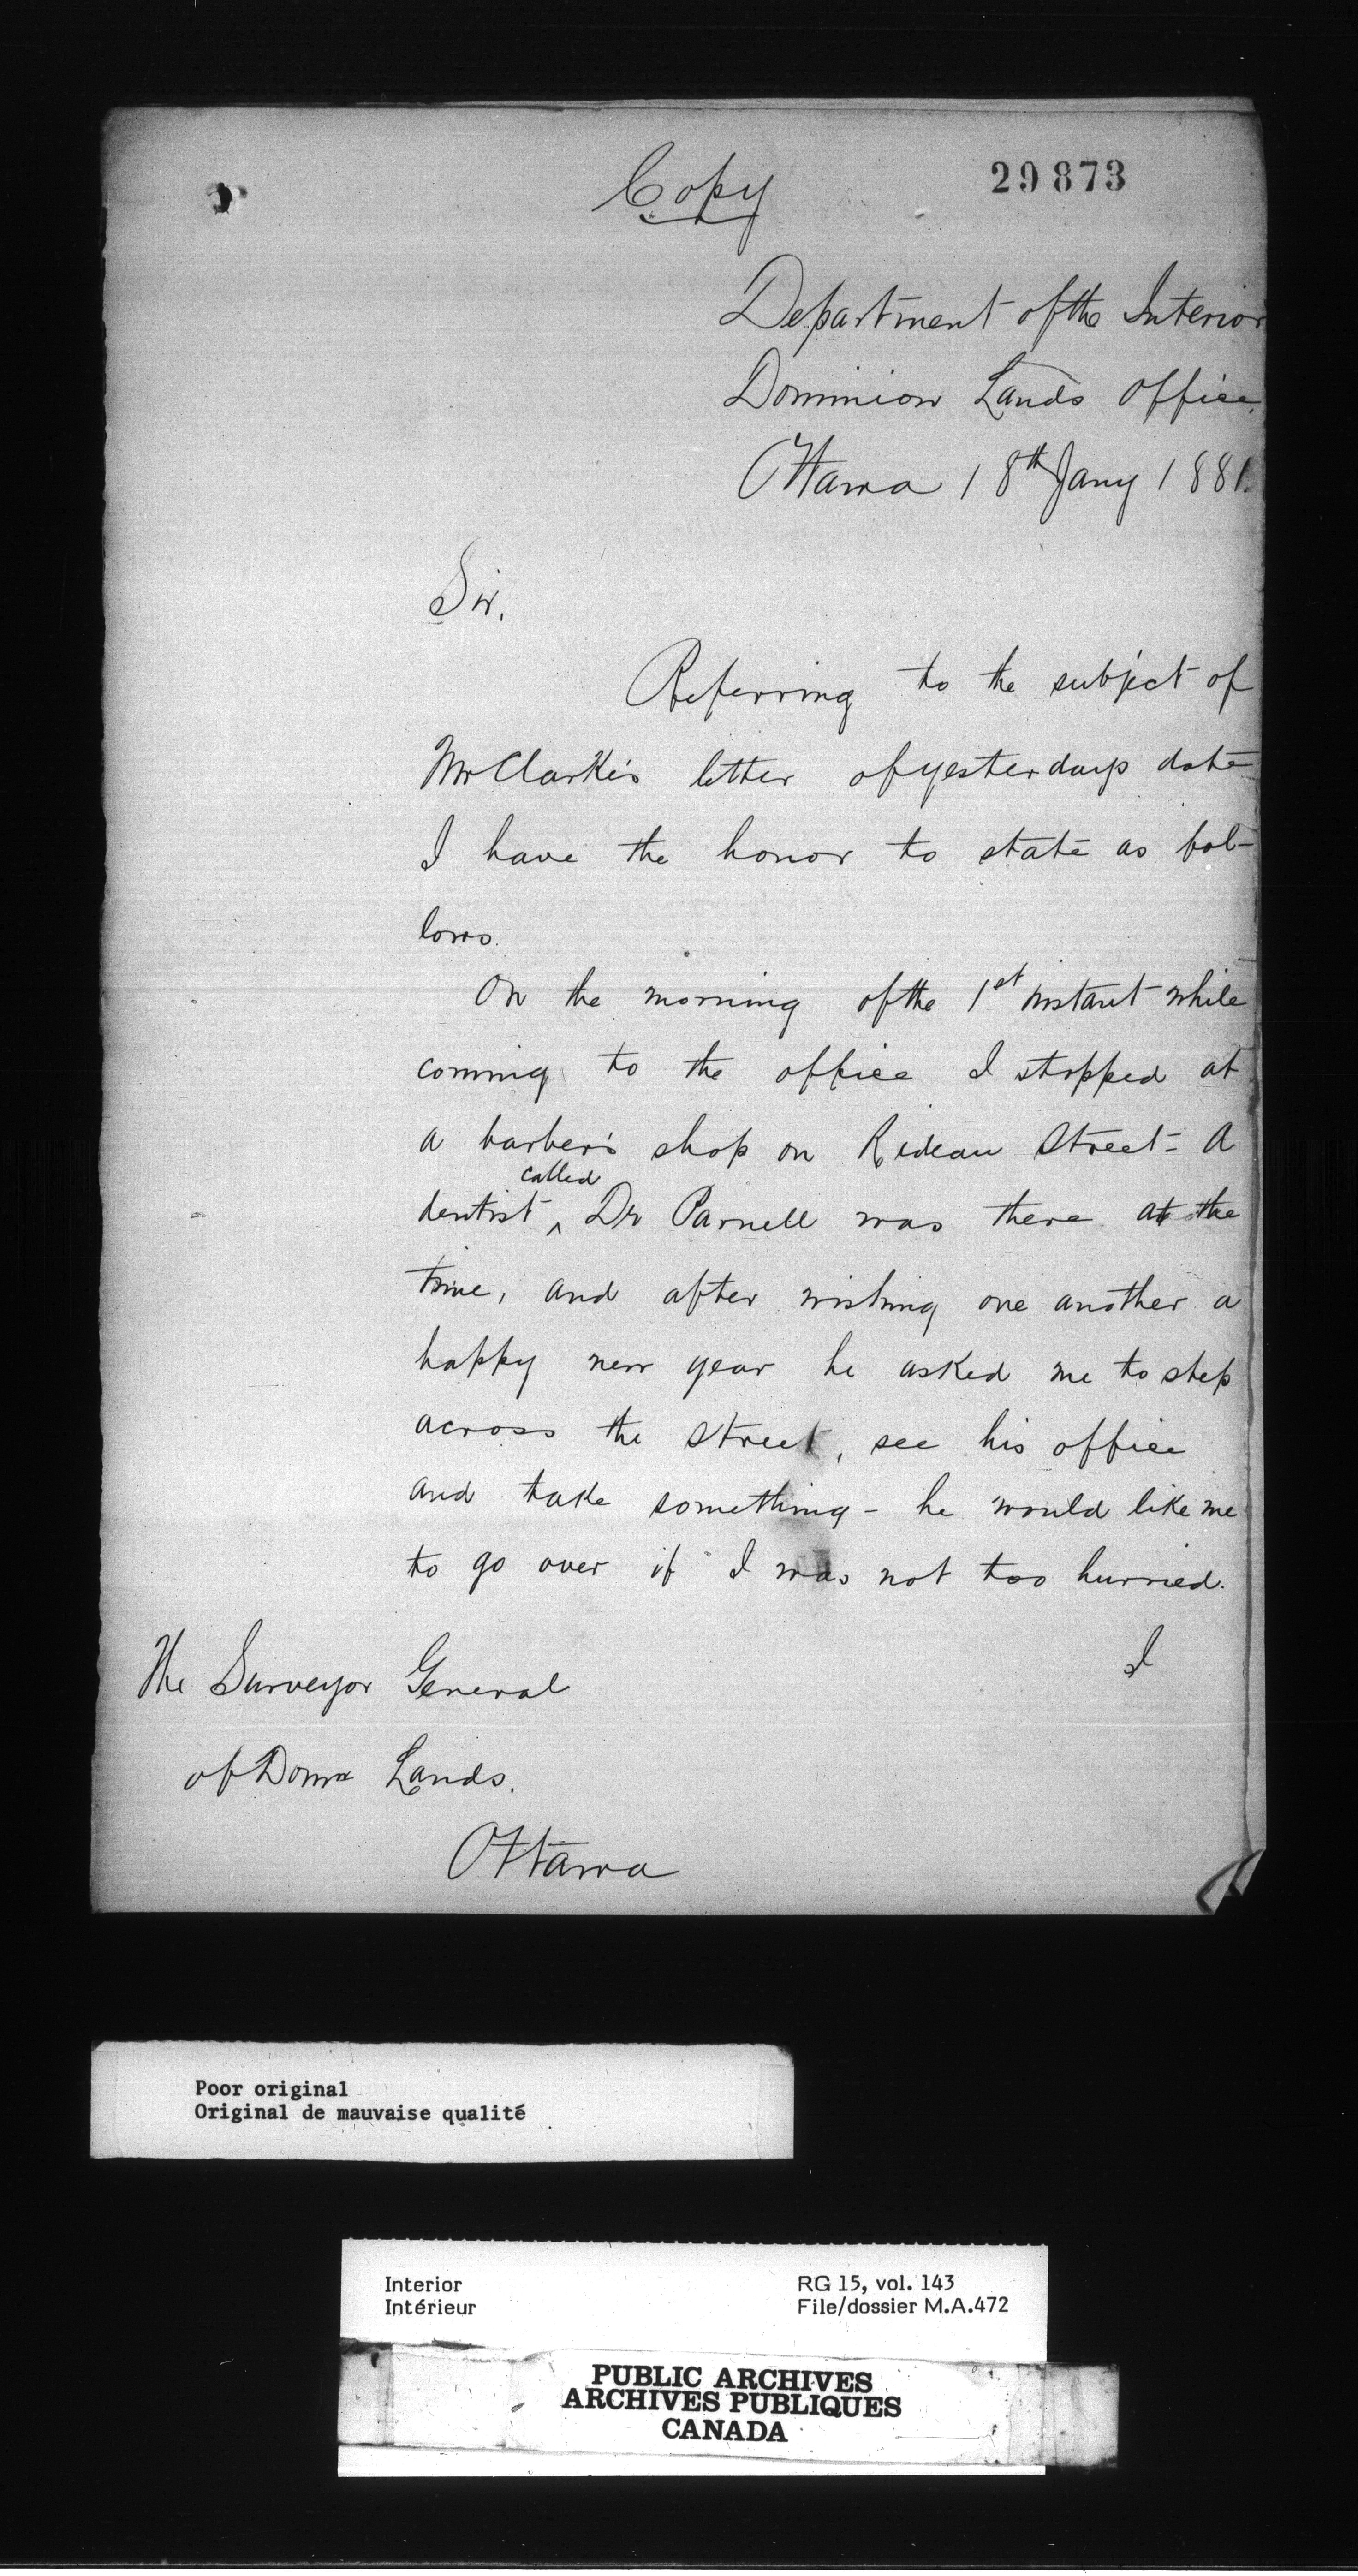 Copy
29873
Department of the Interior
Dominion Lands Office.
Ottawa 18th Jany 1881.
Sir,
Referring to the subject of
Mr Clarke's letter of yesterdays date
I have the honor to state as fol-
lows.
On the morning of the 1st instant while
coming to the office I stopped at
a barber's shop on Rideau Street - A
called
dentist ^ Dr Parnell was there at the
time, and after wishing one another a
happy new year he asked me to step
across the street, see his office
and take something - he would like me
to go over if I was not too hurried.
I
The Surveyor General
of Domn Lands.
Ottawa
Poor original
Original de mauvaise qualité
Interior RG 15, vol. 143
Intérieur File/dossier M.A.472
PUBLIC ARCHIVES
ARCHIVES PUBLIQUES
CANADA